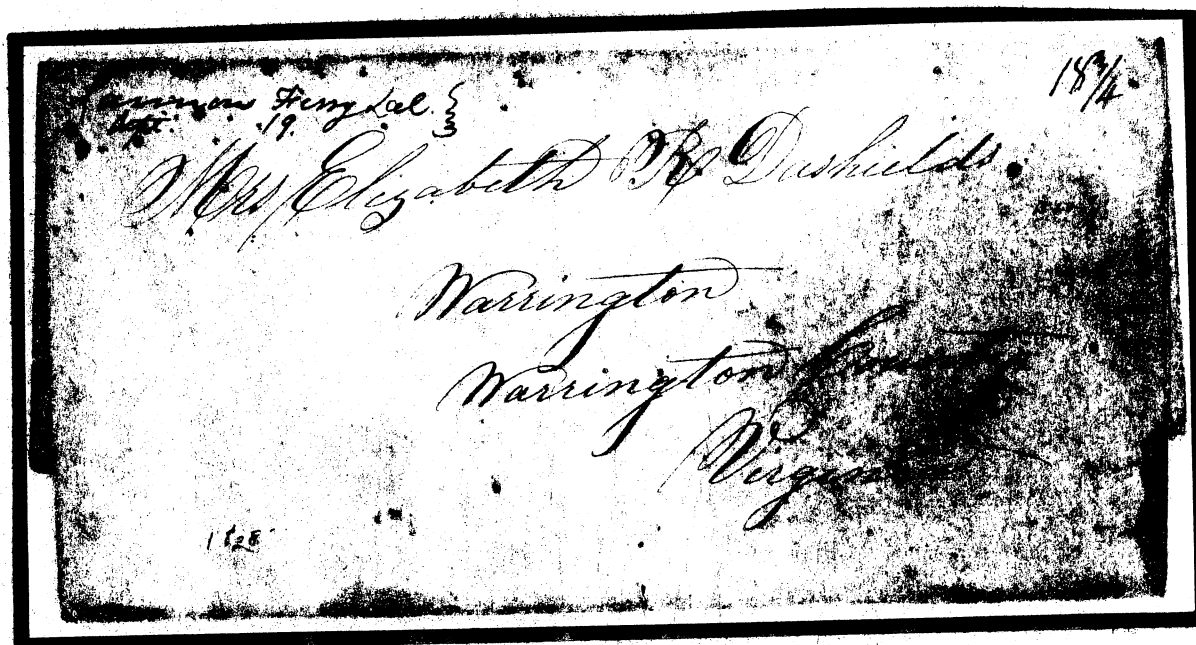 Cannon Ferry Del.
Sept. 19.
18 3/4
Mrs Elizabeth R Dashields
Warrington
Warrington County
Virginia
1828